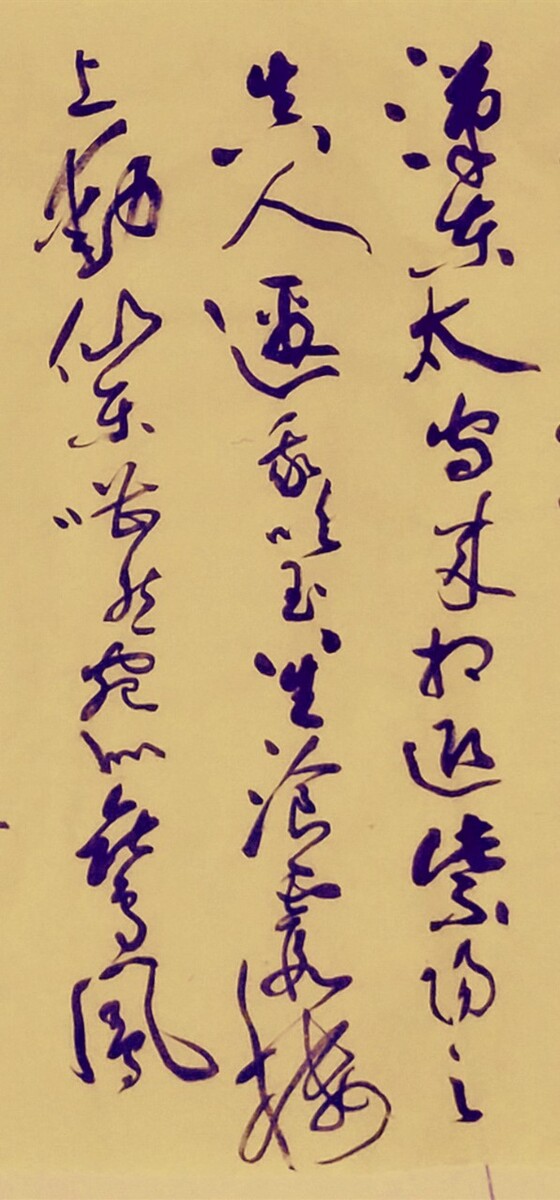 漢東太守来相迎紫陽之
真人邀我吹玉笙湌霞楼
上動仙樂嘈然宛似鸞鳳